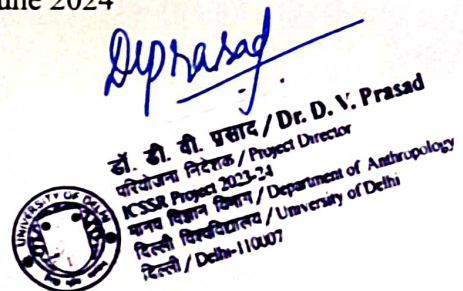 June 2024
DVPrasad
डॉ. डी. वी. प्रसाद / Dr. D. V. Prasad
परियोजना निदेशक / Project Director
ICSSR Project 2023-24
मानव विज्ञान विभाग / Department of Anthropology
दिल्ली विश्वविद्यालय / University of Delhi
दिल्ली / Delhi-110007
UNIVERSITY OF DELHI